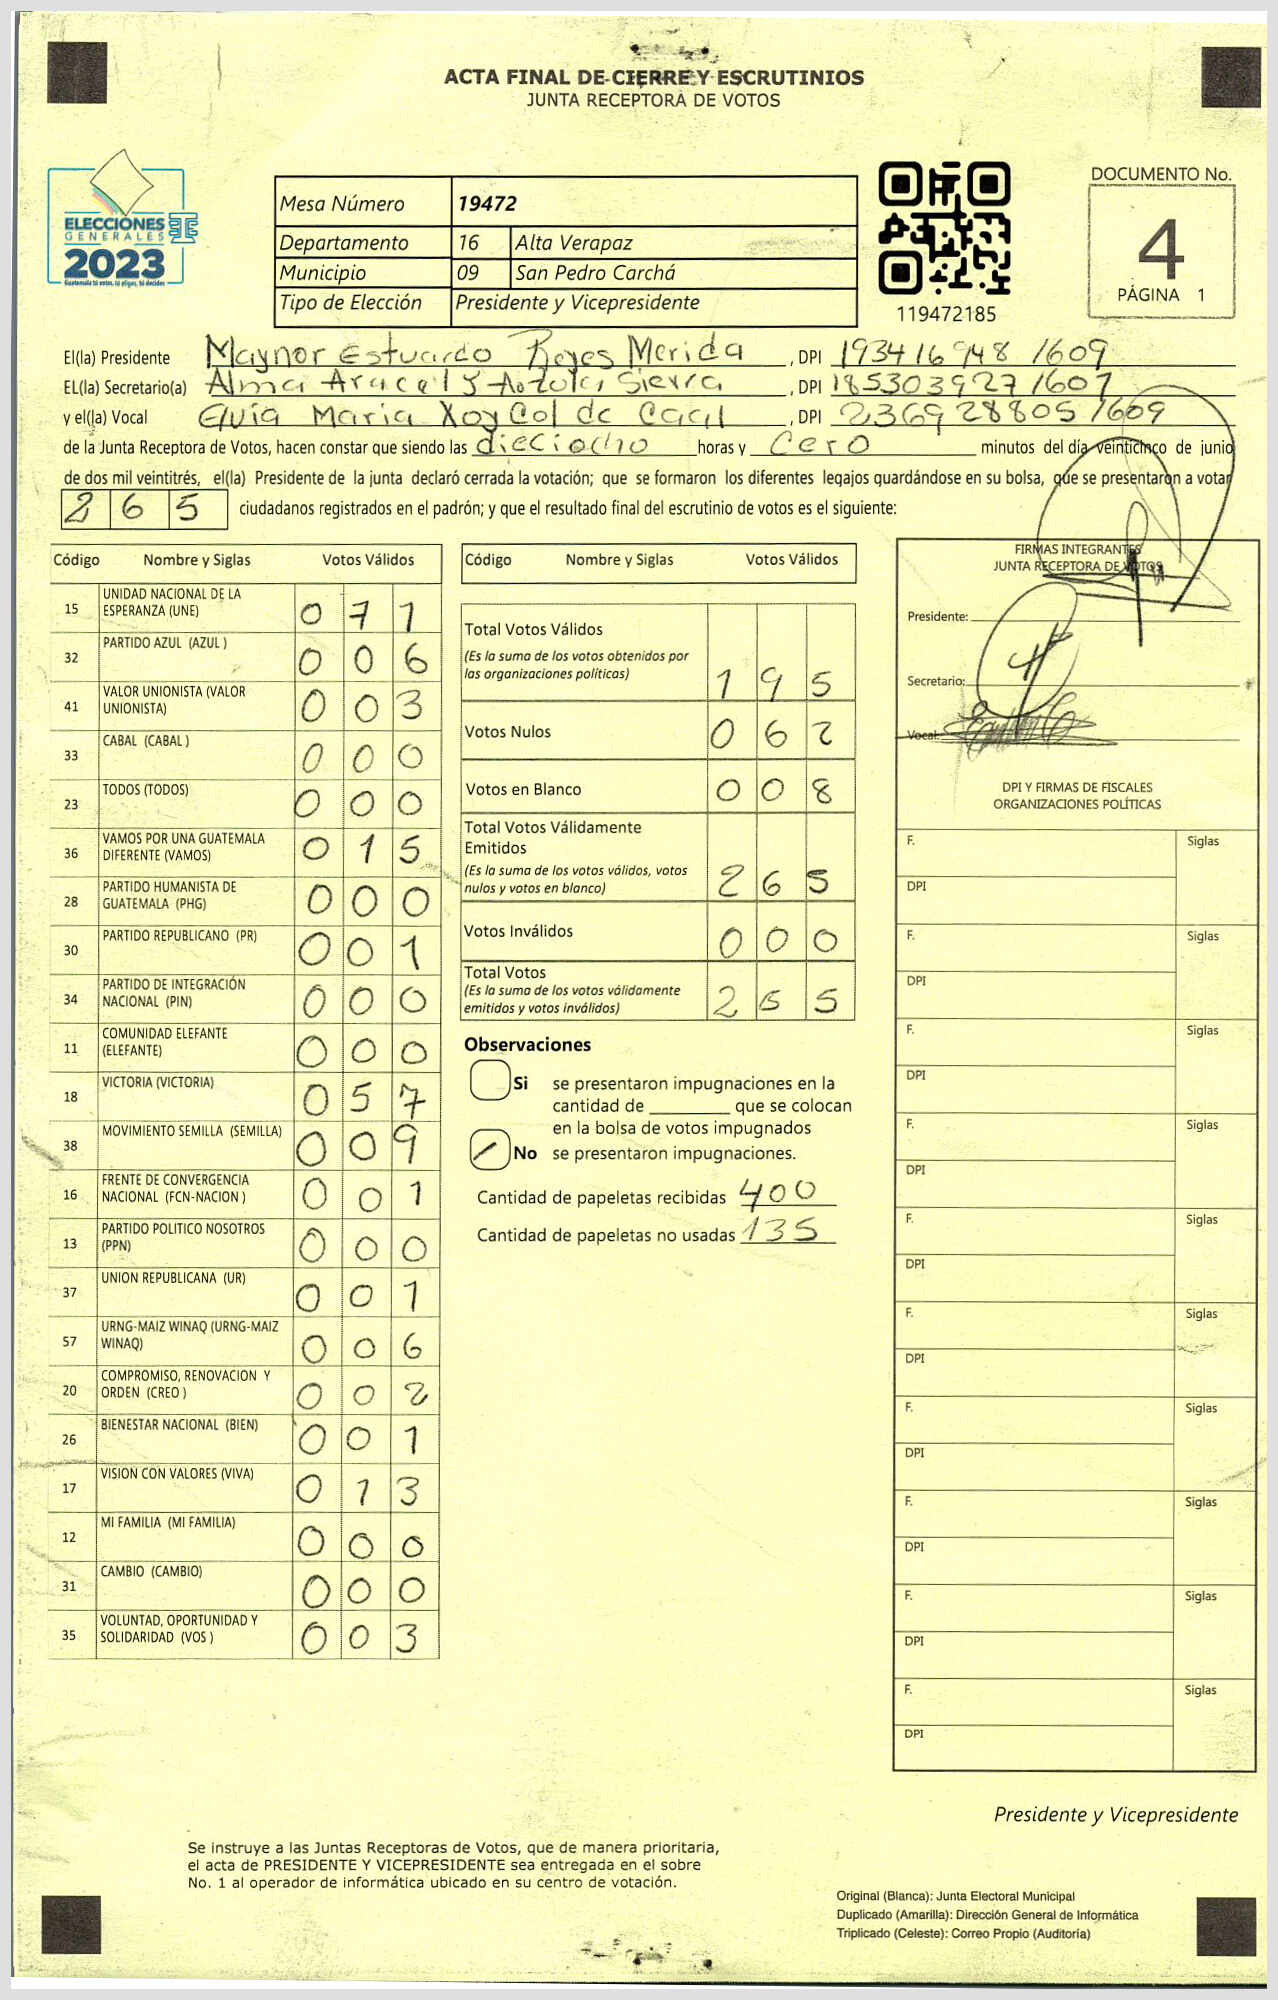 ACTA FINAL DE CIERRE Y ESCRUTINIOS
JUNTA RECEPTORA DE VOTOS
ELECCIONES
GENERALES
2023
Guatemala tú votas, tú eliges, tú decides
Mesa Número 19472
Departamento 16 Alta Verapaz
Municipio 09 San Pedro Carchá
Tipo de Elección Presidente y Vicepresidente
119472185
DOCUMENTO No.
4
PÁGINA 1
El(la) Presidente Maynor Estuardo Reyes Merida , DPI 193416948 1609
EL(la) Secretario(a) Alma Sierra , DPI 185303927 1607
y el(la) Vocal Elvia Maria Xoy Col de Caal , DPI 236928805 1609
de la Junta Receptora de Votos, hacen constar que siendo las dieciocho horas y Cero minutos del día veinticinco de junio
de dos mil veintitrés, el(la) Presidente de la junta declaró cerrada la votación; que se formaron los diferentes legajos guardándose en su bolsa, que se presentaron a votar
265 ciudadanos registrados en el padrón; y que el resultado final del escrutinio de votos es el siguiente:
Código Nombre y Siglas Votos Válidos
15 UNIDAD NACIONAL DE LA ESPERANZA (UNE) 071
32 PARTIDO AZUL (AZUL ) 006
41 VALOR UNIONISTA (VALOR UNIONISTA) 003
33 CABAL (CABAL ) 000
23 TODOS (TODOS) 000
36 VAMOS POR UNA GUATEMALA DIFERENTE (VAMOS) 015
28 PARTIDO HUMANISTA DE GUATEMALA (PHG) 000
30 PARTIDO REPUBLICANO (PR) 001
34 PARTIDO DE INTEGRACIÓN NACIONAL (PIN) 000
11 COMUNIDAD ELEFANTE (ELEFANTE) 000
18 VICTORIA (VICTORIA) 057
38 MOVIMIENTO SEMILLA (SEMILLA) 009
16 FRENTE DE CONVERGENCIA NACIONAL (FCN-NACION ) 001
13 PARTIDO POLITICO NOSOTROS (PPN) 000
37 UNION REPUBLICANA (UR) 001
57 URNG-MAIZ WINAQ (URNG-MAIZ WINAQ) 006
20 COMPROMISO, RENOVACION Y ORDEN (CREO ) 002
26 BIENESTAR NACIONAL (BIEN) 001
17 VISION CON VALORES (VIVA) 013
12 MI FAMILIA (MI FAMILIA) 000
31 CAMBIO (CAMBIO) 000
35 VOLUNTAD, OPORTUNIDAD Y SOLIDARIDAD (VOS ) 003
Código Nombre y Siglas Votos Válidos
Total Votos Válidos
(Es la suma de los votos obtenidos por
las organizaciones políticas) 195
Votos Nulos 062
Votos en Blanco 008
Total Votos Válidamente
Emitidos
(Es la suma de los votos válidos, votos
nulos y votos en blanco) 265
Votos Inválidos 000
Total Votos
(Es la suma de los votos válidamente
emitidos y votos inválidos) 265
Observaciones
Si se presentaron impugnaciones en la
cantidad de ________ que se colocan
en la bolsa de votos impugnados
No se presentaron impugnaciones.
Cantidad de papeletas recibidas 400
Cantidad de papeletas no usadas 135
FIRMAS INTEGRANTES
JUNTA RECEPTORA DE VOTOS
Presidente:
Secretario:
Vocal:
DPI Y FIRMAS DE FISCALES
ORGANIZACIONES POLÍTICAS
F. Siglas
DPI
F. Siglas
DPI
F. Siglas
DPI
F. Siglas
DPI
F. Siglas
DPI
F. Siglas
DPI
F. Siglas
DPI
F. Siglas
DPI
F. Siglas
DPI
F. Siglas
DPI
Presidente y Vicepresidente
Se instruye a las Juntas Receptoras de Votos, que de manera prioritaria,
el acta de PRESIDENTE Y VICEPRESIDENTE sea entregada en el sobre
No. 1 al operador de informática ubicado en su centro de votación.
Original (Blanca): Junta Electoral Municipal
Duplicado (Amarilla): Dirección General de Informática
Triplicado (Celeste): Correo Propio (Auditoría)